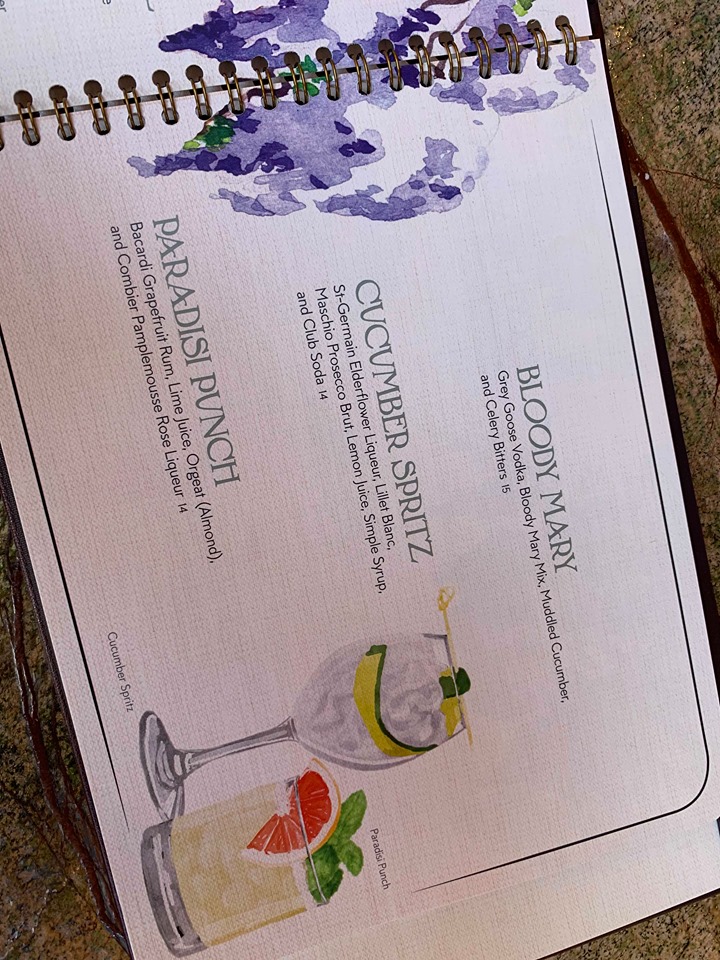 BLOODY MARY
Grey Goose Vodka, Bloody Mary Mix, Muddled Cucumber,
and Celery Bitters 15
CUCUMBER SPRITZ
St-Germain Elderflower Liqueur, Lillet Blanc,
Maschio Prosecco Brut, Lemon Juice, Simple Syrup,
and Club Soda 14
PARADISI PUNCH
Bacardi Grapefruit Rum, Lime Juice, Orgeat (Almond),
and Combier Pamplemousse Rose Liqueur 14
Paradisi Punch
Cucumber Spritz